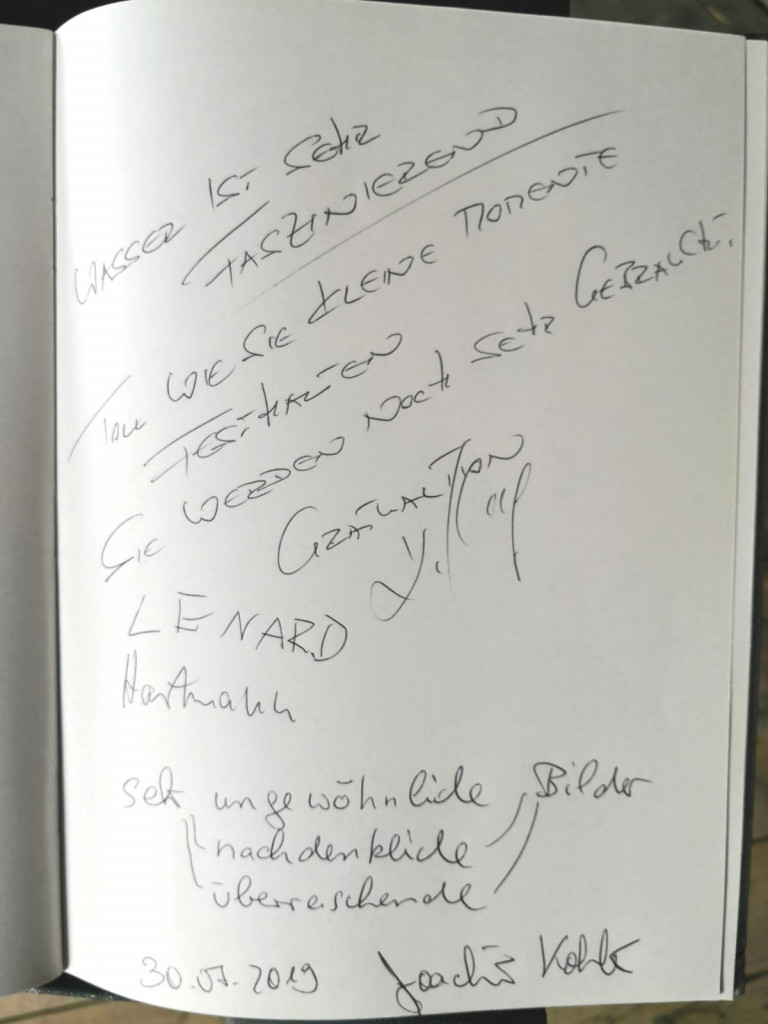 WASSER IST SEHR
FASZINIEREND
TOLL WIE SIE KLEINE MOMENTE
FESTHALTEN
SIE WERDEN NOCH SEHR GEBRAUCHT.
GRATULATION
LENARD
Hartmann
sehr ungewöhnliche Bilder
nachdenkliche
überraschende
30.07.2019 Joachim